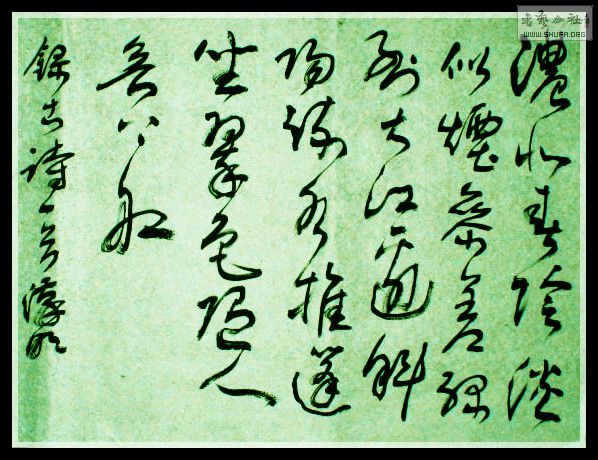 濃似春陰淡
似煙參差綠
到大江邊斜
陽流水推篷
坐翠色隨人
欲上船
錄古詩一首
书艺公社
WWW.SHUFA.ORG